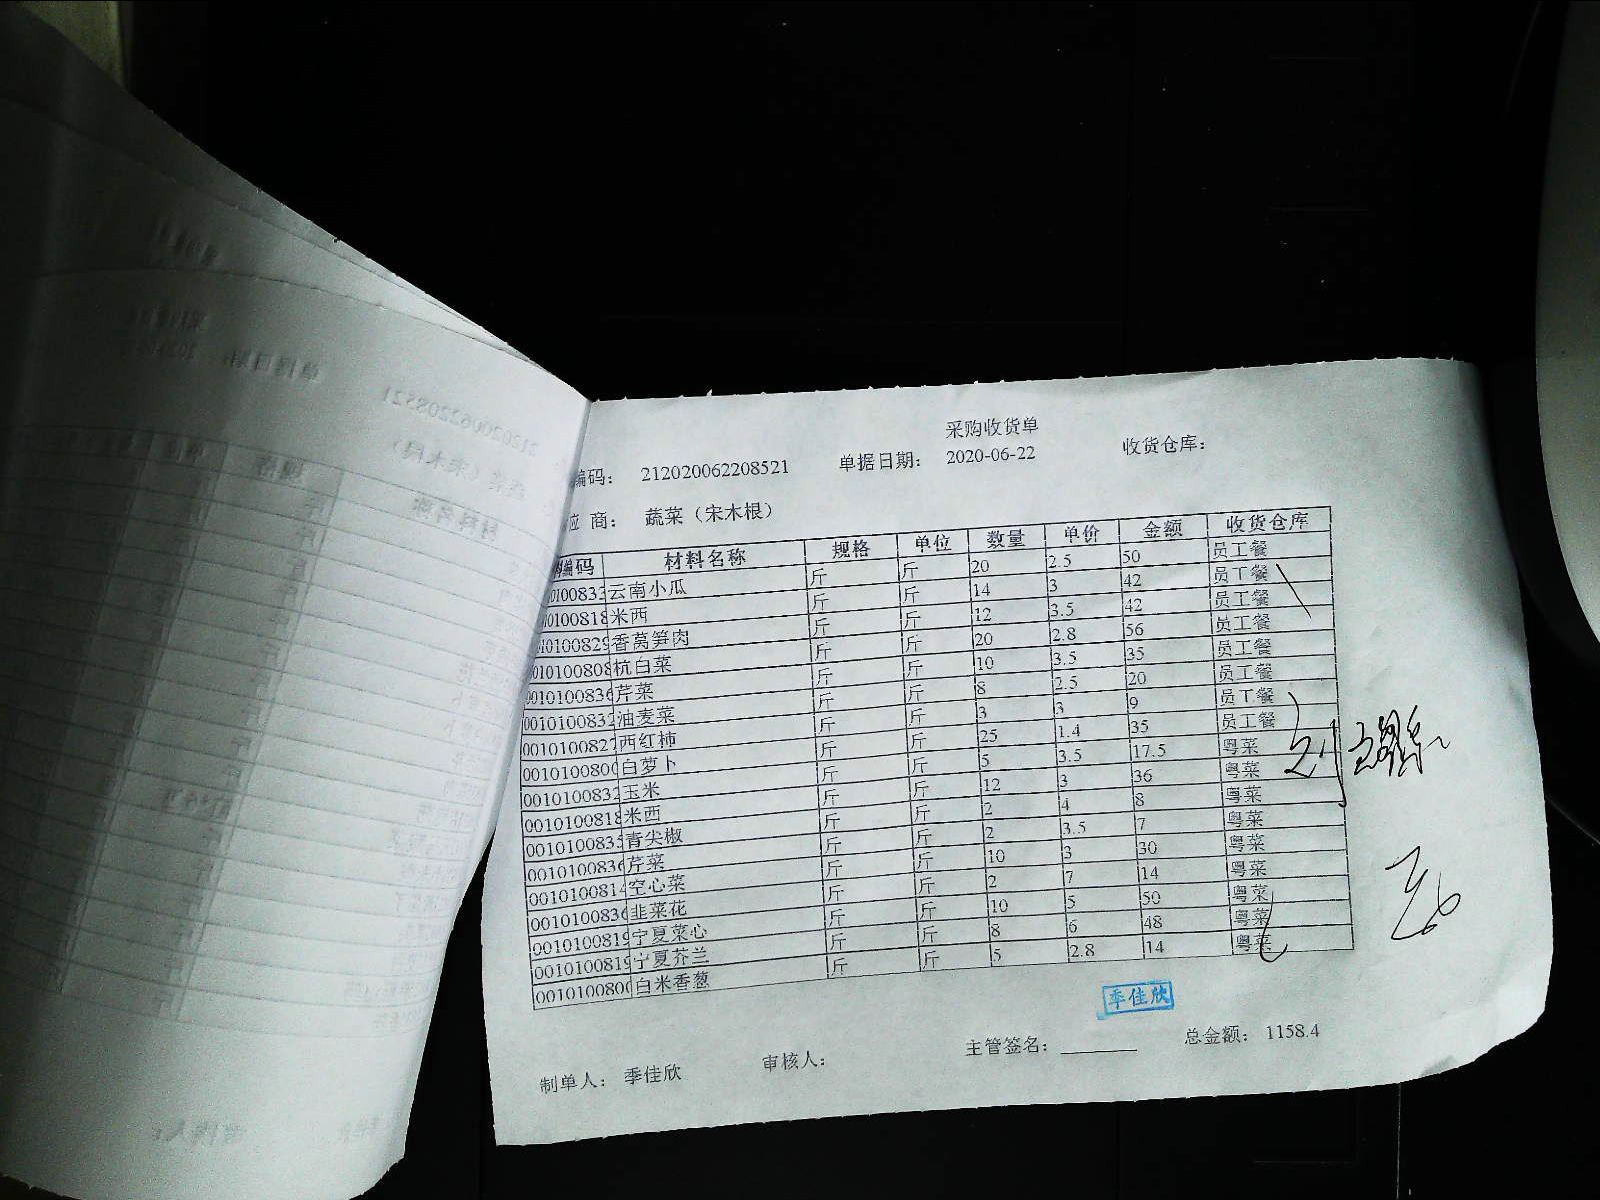 采购收货单
编码： 212020062208521 单据日期： 2020-06-22 收货仓库：
应 商： 蔬菜（宋木根）
编码 材料名称 规格 单位 数量 单价 金额 收货仓库
010083 云南小瓜 斤 斤 20 2.5 50 员工餐
0100818 米西 斤 斤 14 3 42 员工餐
0100829 香莴笋肉 斤 斤 12 3.5 42 员工餐
0100808 杭白菜 斤 斤 20 2.8 56 员工餐
010100836 芹菜 斤 斤 10 3.5 35 员工餐
001010083 油麦菜 斤 斤 8 2.5 20 员工餐
001010082 西红柿 斤 斤 3 3 9 员工餐
001010080 白萝卜 斤 斤 25 1.4 35 员工餐
001010083 玉米 斤 斤 5 3.5 17.5 粤菜
0010100818 米西 斤 斤 12 3 36 粤菜
001010083 青尖椒 斤 斤 2 4 8 粤菜
0010100836 芹菜 斤 斤 2 3.5 7 粤菜
001010081 空心菜 斤 斤 10 3 30 粤菜
001010083 韭菜花 斤 斤 2 7 14 粤菜
0010100819 宁夏菜心 斤 斤 10 5 50 粤菜
0010100819 宁夏芥兰 斤 斤 8 6 48 粤菜
001010080 白米香葱 斤 斤 5 2.8 14 粤菜
季佳欣
制单人： 季佳欣 审核人： 主管签名： 总金额： 1158.4